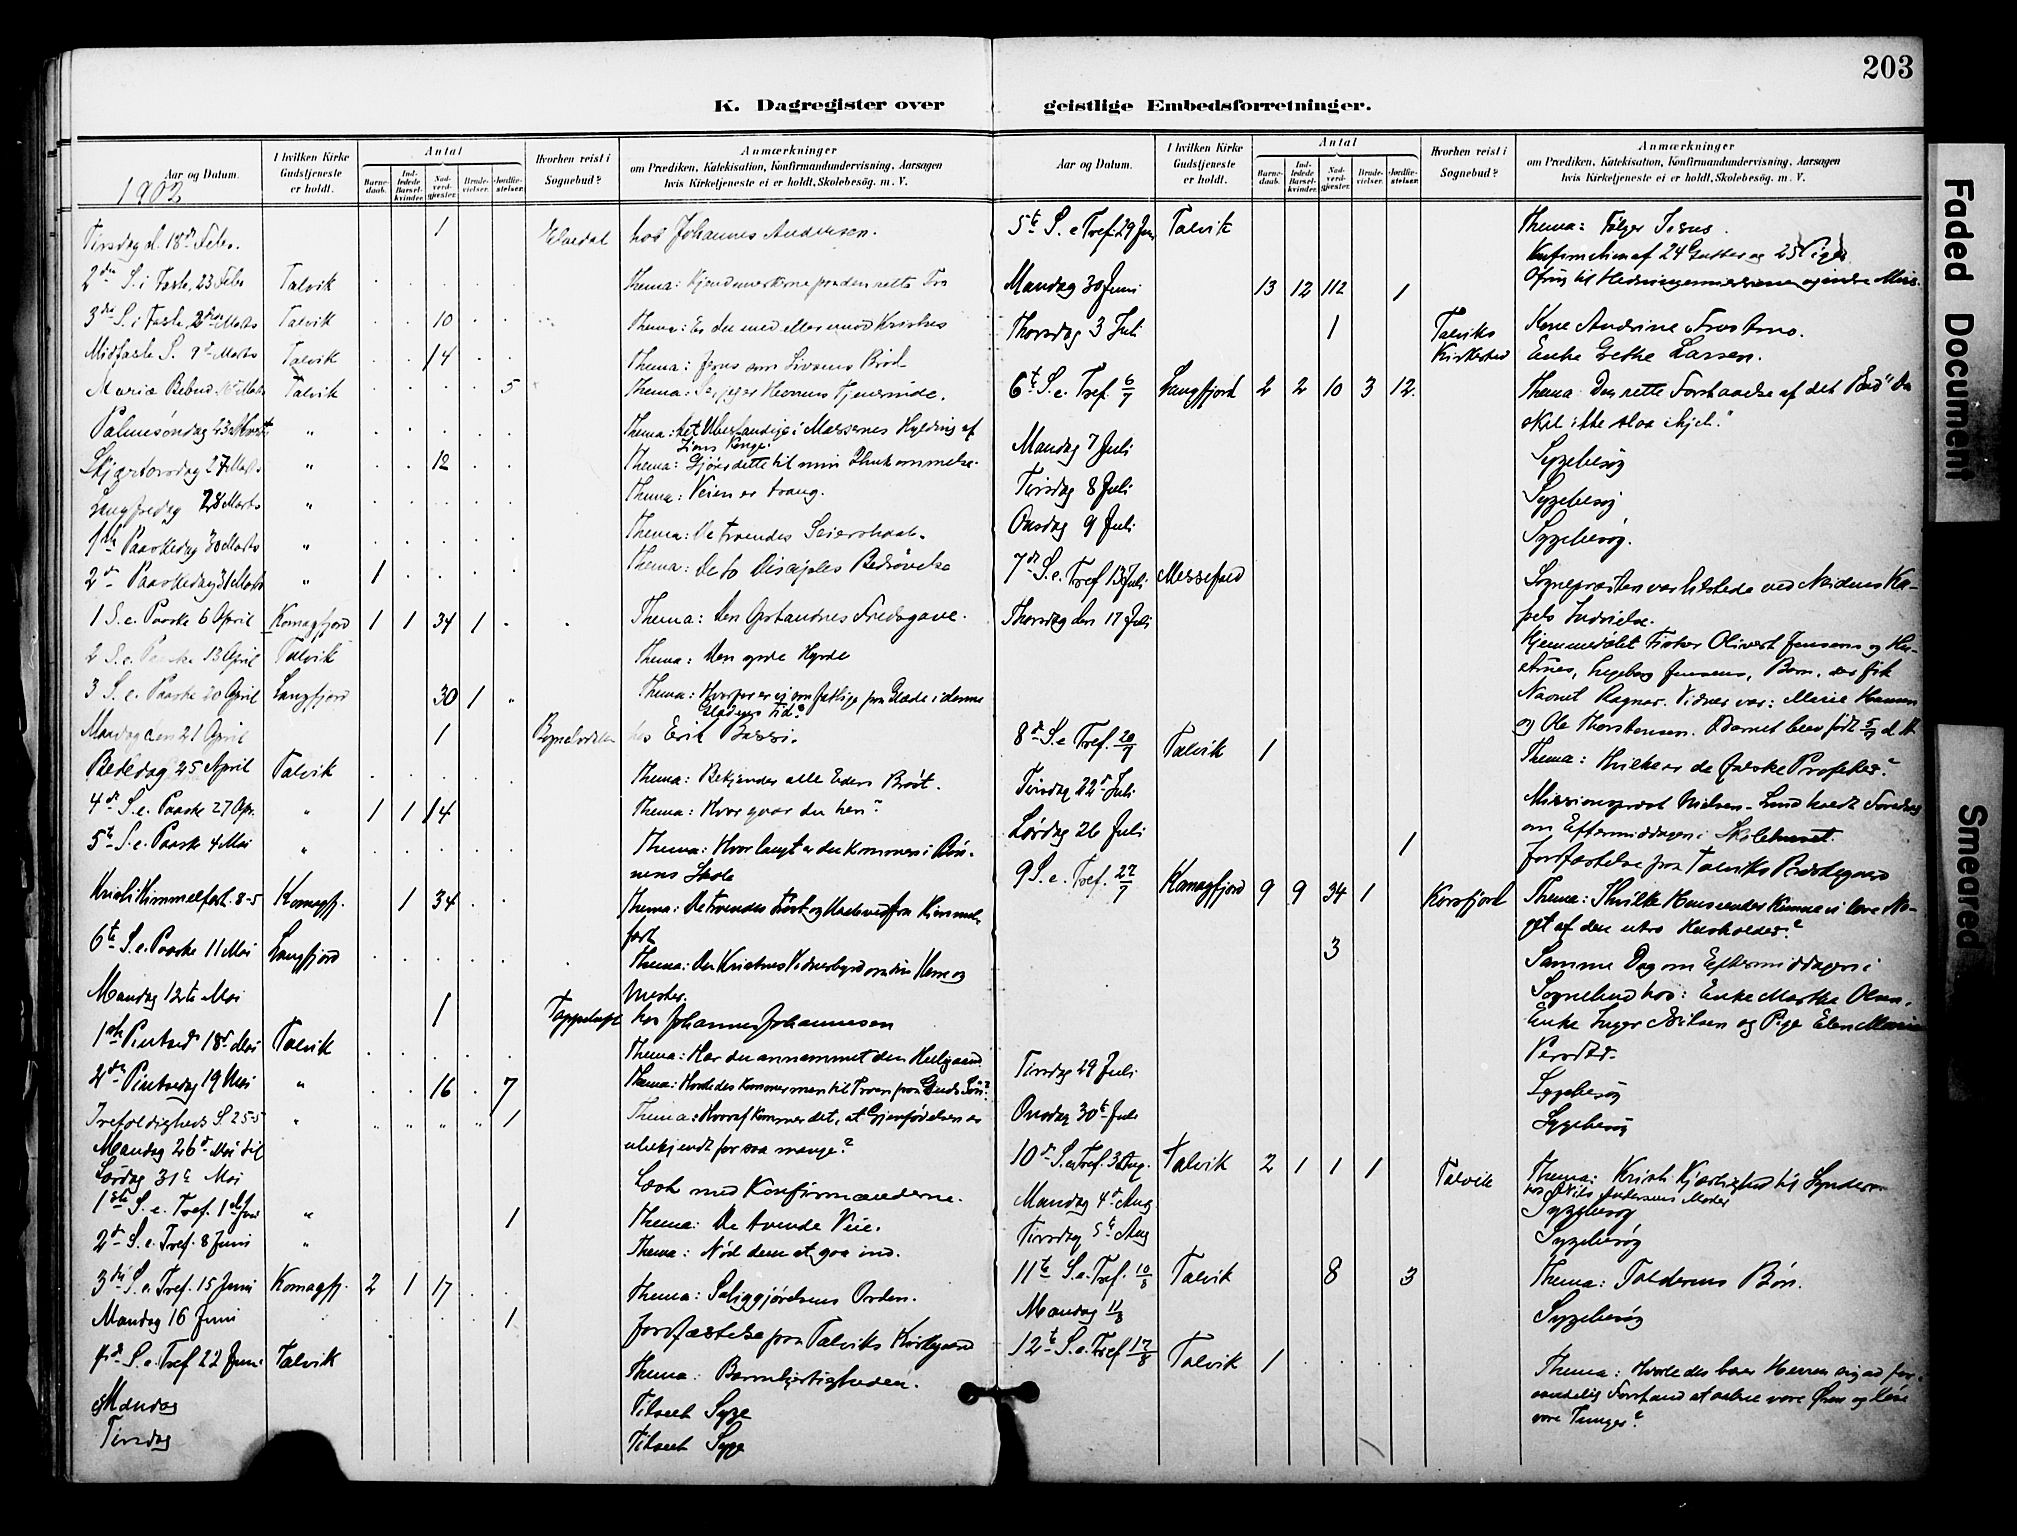 203
K. Dagregister over
geistlige Embedsforretninger.
Aar og Datum.
I hvilken Kirke Gudstjeneste er holdt.
Antal
Barne-daab.
Ind-ledede Barsel-kvinder.
Nad-verd-gjester.
Brude-vielser.
Jordfæ-stelser.
Hvorhen reist i Sognebud?
Anmærkninger
om Prædiken, Katekisation, Konfirmandundervisning, Aarsagen
hvis Kirketjeneste ei er holdt, Skolebesøg. m. V.
1902
Tirsdag d. 18de Febr. 1 hos Johannes Andersen.
2den S. i Faste, 23 Febr Talvik . . . . . Thema: Kjendemerkerne paa den rette Tro
3die S. i Faste, 2den Marts Talvik . . 10 . . Thema: Er du med eller imod Kristus
Midfaste S. 9de Marts Talvik . . 14 . . Thema: Jesus som Livsens Brød
Mariæ Bebud. Marts Talvik . . . . 5 Thema: Se, jeg er Herrens Tjenerinde.
Palmesøndag 23de Marts " . . . . . Thema: Det Ubestandige i Massernes Hylding af
Zions Konge.
Skjærtorsdag 27 Marts " . . 12 . . Thema: Gjører dette til min Ihukommelse.
Langfredag 28 Marts " . . . . . Thema: Veien er trang.
1ste Paaskedag 30 Marts " . . . . . Thema: De troendes Seiershaab.
2den Paaskedag 31 Marts " 1 . . . . Thema: De to Disciples Bedrøvelse
1 S. e. Paaske 6 April Komagfjord 1 1 34 1 . . Thema: Den Opstandnes Fredsgave.
2 S. e. Paaske 13 April Talvik Thema: Den gode Hyrde
3 S. e. Paaske 20 April Langfjord 30 1 " Thema: Hvorfor er vi saa fattige paa Glæde i denne
Glædens Tid?
Mandag den 21 April 1 hos Erik
Bededag 25 April Talvik . . . . . Thema: Bekjender alle Eders Brøst.
4de S. e. Paaske 27 Apr. " 1 1 14 Thema: Hvor gaar du hen?
5te S. e. Paaske 4 Mai " . . . . . Thema: Hvor langt er du kommen i Bøn-
nens Skole
Kristi Himmelfart. 8-5 Komagfj. 1 34 . . Thema: De troendes Trøst og Glæde ved fra Himmel-
fart
6te S. e. Paaske 11 Mai Langfjord . . . . . Thema: Den Kristnes Vidnesbyrd om sin Herre og
Mester.
Mandag 12te Mai 1 hos Johannes Johannesen
1ste Pintsed 18de Mai Talvik . . . . . Thema: Har du annammet den Helligaand
2den Pintsedag 19 Mai " . . 16 . 7 Thema: Hvorledes kommer man til Troen paa Guds Søn?
Trefoldigheds S. 25-5 " " " " " 1 Thema: Hvoraf kommer det, at Gjenfødelsen er
ubekjendt for saa mange?
Mandag 26de Mai til
Lørdag 31te Mai Læst med Konfirmanderne.
1ste S. e. Tref. 1ste Juni " 1 Thema: De tvende Veie.
2den S. e. Tref. 8 Juni " Thema: Nød dem at gaa ind.
3die S. e. Tref. 15 Juni Komagfj. 2 1 17 . . Thema: Saliggjørelsens Orden.
Mandag 16 Juni . . . . 1 Jordfæstelse paa Talviks Kirkegaard
4de S. e. Tref 22 Juni Talvik Thema: Barmhjertigheden.
Mandag Tilseet Syge
Tirsdag Tilseet Syge
Aar og Datum.
I hvilken Kirke Gudstjeneste er holdt.
Antal
Barne-daab.
Ind-ledede Barsel-kvinder.
Nad-verd-gjester.
Brude-vielser.
Jordfæ-stelser.
Hvorhen reist i Sognebud?
Anmærkninger
om Prædiken, Katekisation, Konfirmandundervisning, Aarsagen
hvis Kirketjeneste ei er holdt, Skolebesøg. m. V.
5te S. e Tref. 29 Juni Talvik Thema: Følger Jesus.
Konfirmation af 24 Gutter og 25 Piger
Mandag 30 Juni 13 12 112 1 Ofring til Hedningemissionen og indre Miss.
Thorsdag 3 Juli 1 Talviks Kirkested Kone Andrine
Enke Grethe Larsen.
6te S. e. Tref. 6/7 Langfjord 2 2 10 3 12. Thema: Den rette Forstaaelse af det Bud "Du
skal ikke slaa ihjel."
Mandag 7 Juli Sygebesøg
Tirsdag 8 Juli Sygebesøg
Onsdag 9 Juli Sygebesøg.
7de S. e. Tref 13 Juli Sognepræsten var tilstede ved Neidens Ka-
pels Indvielse.
Thorsdag den 17 Juli Hjemmedøbt Fisker Olivert Jensens og Hu-
strues, Ingeborg Jensens, Barn, der fik
Navnet Ragnar. Vidner var: Marie
og Ole Thorstensen. Barnet blev født 5/7 d. A.
8de S. e Tref. 20/7 Talvik 1 Thema: Hvilke er de falske Profeter?
Tirsdag 22de Juli Missionsprest Nielsen-Lund holdt Foredrag
om Eftermiddagen i Skolehuset.
Lørdag 26 Juli 1 Jordfæstelse paa Talviks
9 S. e. Tref. 27/7 Komagfjord 9 9 34 1 Korsfjord Thema: I hvilke Henseender kunne vi lære No-
get af den utro Husholder?
3 Samme Dag om Eftermiddagen i
Sognebud hos: Enke Marthe Olsen,
Enke Inger Nilsen og Pige Elen Marie
Tirsdag 29 Juli Sygebesøg
Onsdag 30te Juli Sygebesøg
10de S. e Tref. 3 Aug. Talvik 2 1 1 1 Talvik Thema: Kristi Kjærlighed til Syndere
hos Nils Andersens Moder
Mandag 4de Aug Sygebesøg
Tirsdag 5te Aug Sygebesøg
11te S. e. Tref. 10/8 Talvik 8 3 Thema: Tolderens Bøn.
Mandag 11/8 Sygebesøg
12te S. e. Tref 17/8 Talvik 1 . . . . Thema: Hvorledes bær Herren sig ad for i
aandelig Forstand at aabne vore Øren og løse
vore Tunger?
Faded Document
Smeared